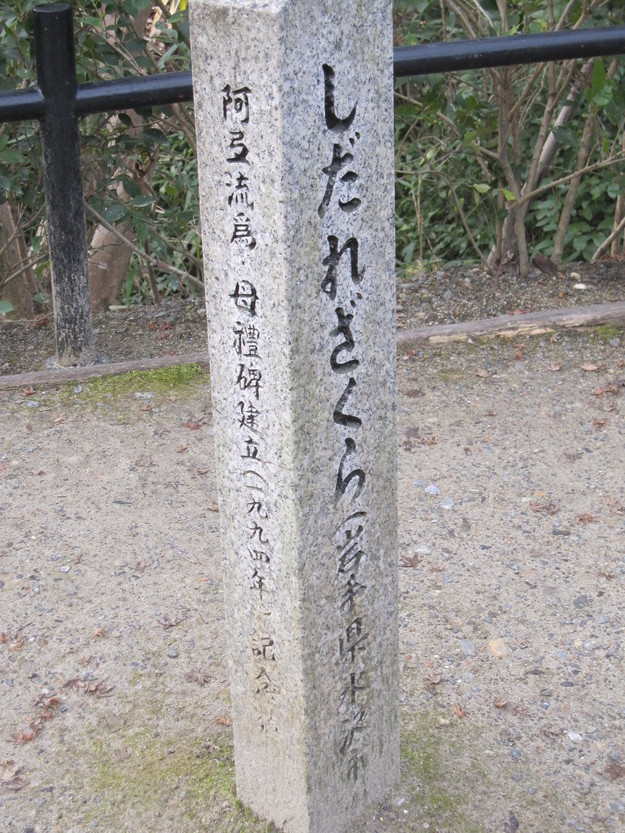 しだれざくら 岩手県水沢市
阿弖流爲・母禮碑建立(一九九四年)記念